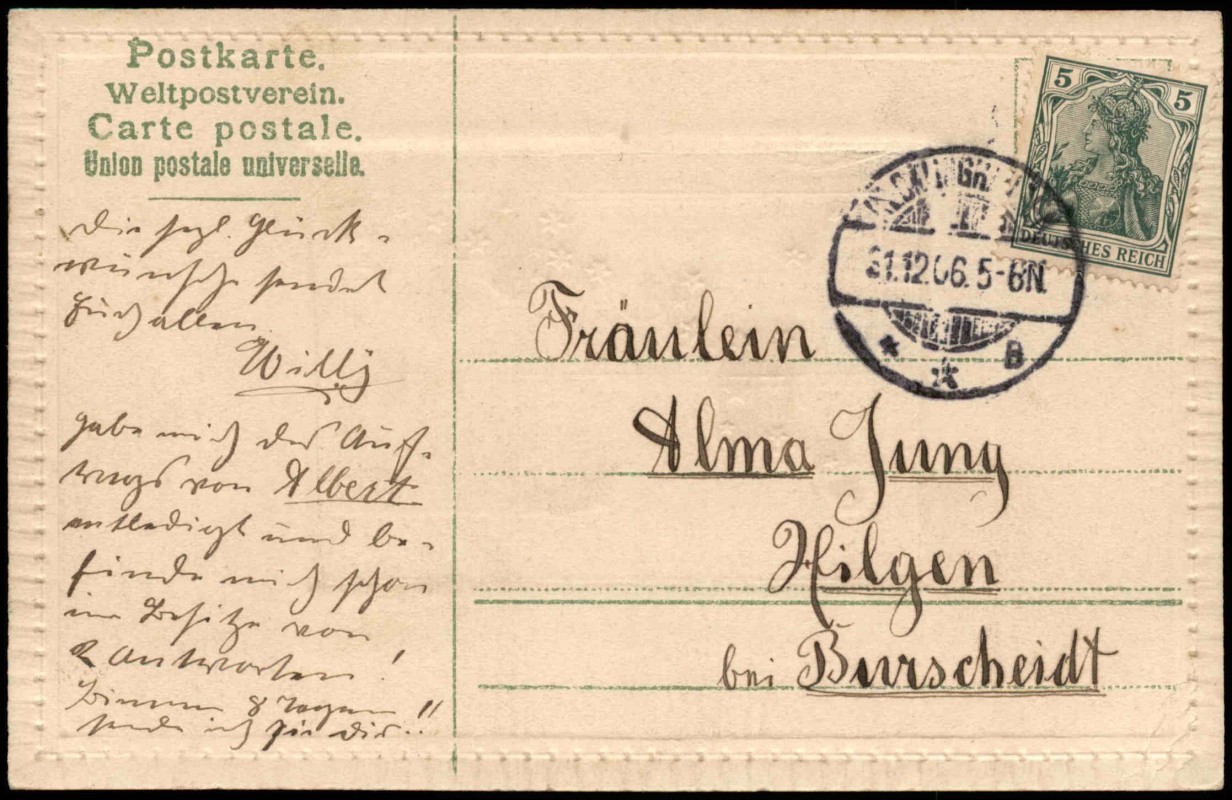 Postkarte.
Weltpostverein.
Carte postale.
Union postale universelle.
Die hzl. Glück-
wünsche sendet
Euch allen
Willy
habe mich des Auf-
trags von Albert
entledigt und be-
finde mich schon
im Besitze von
2 Antworten!
Binnen 8 Tagen
sende ich sie dir!!
5 5
DEUTSCHES REICH
31.12.06. 5-6N.
B
Fräulein
Alma Jung
Hilgen
bei Burscheidt